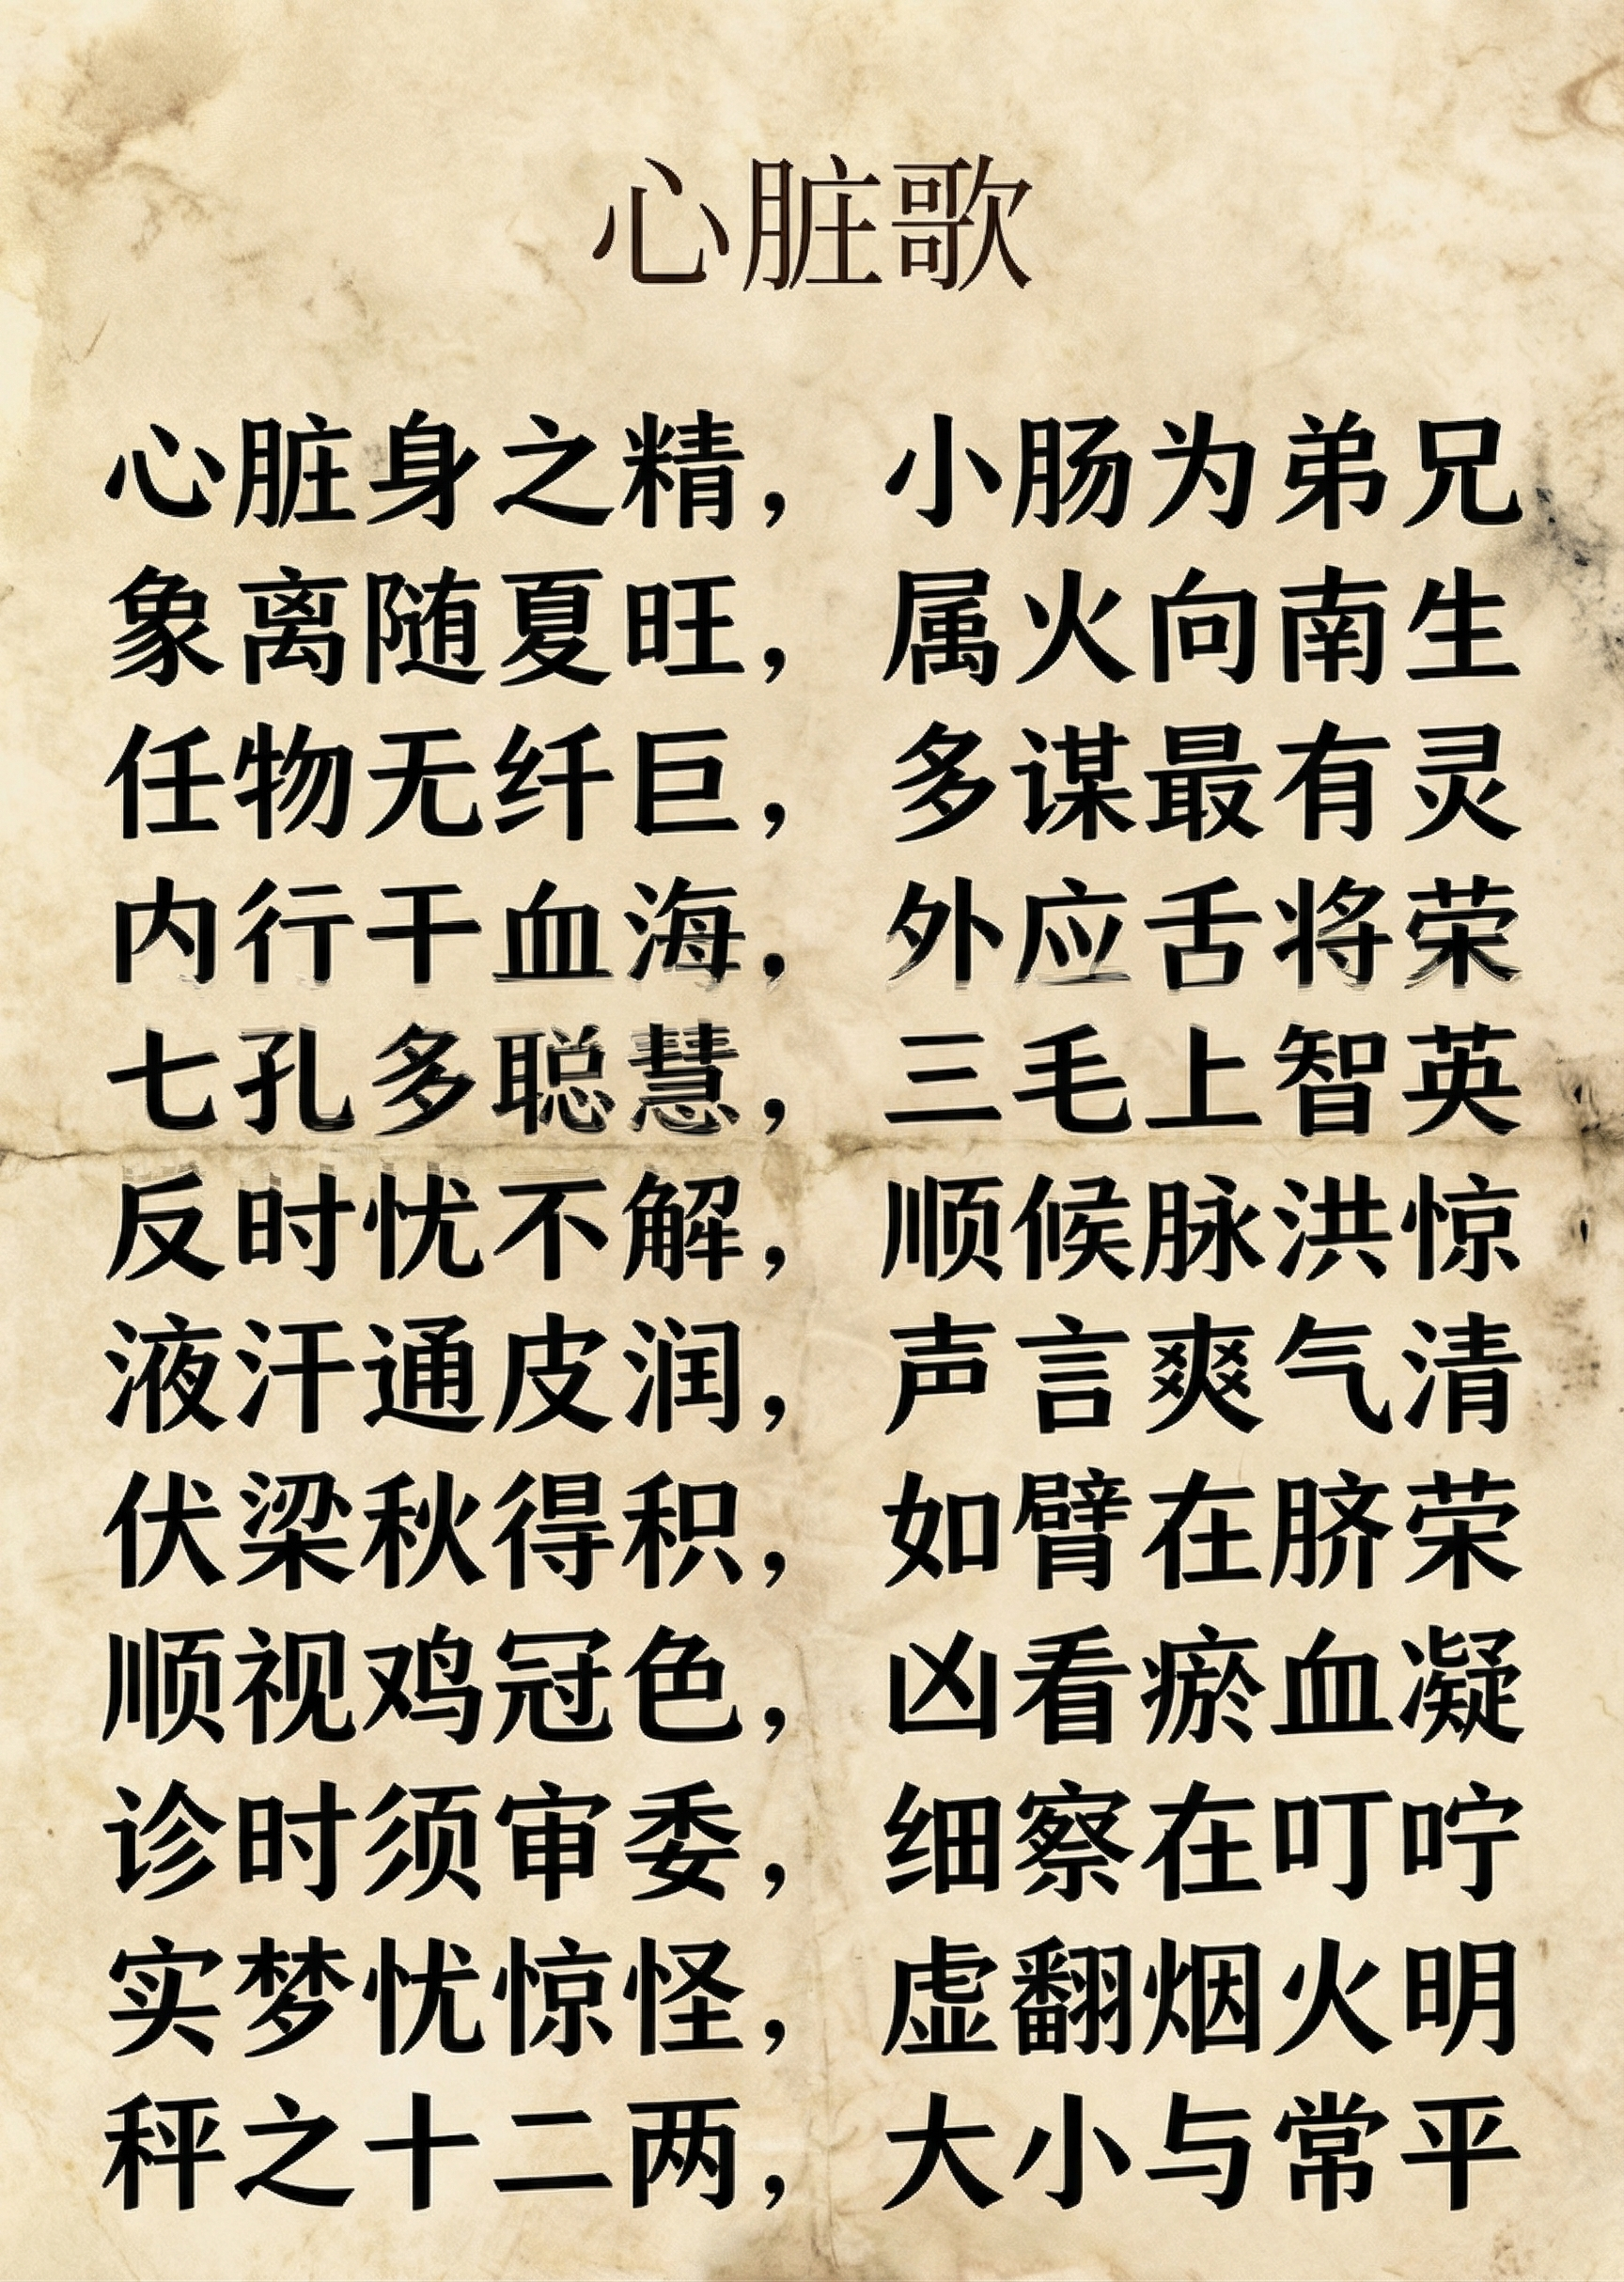 心脏歌
心脏身之精，小肠为弟兄
象离随夏旺，属火向南生
任物无纤巨，多谋最有灵
内行干血海，外应舌将荣
七孔多聪慧，三毛上智英
反时忧不解，顺候脉洪惊
液汗通皮润，声言爽气清
伏梁秋得积，如臂在脐荣
顺视鸡冠色，凶看瘀血凝
诊时须审委，细察在叮咛
实梦忧惊怪，虚翻烟火明
秤之十二两，大小与常平